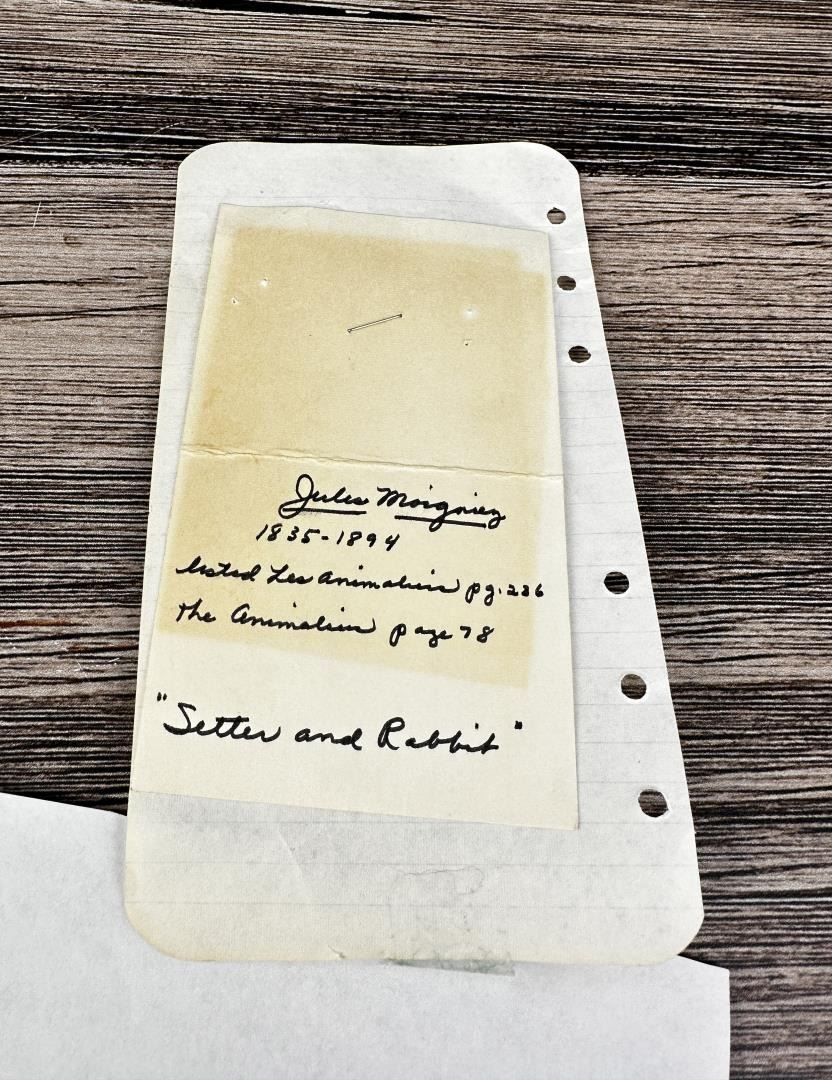 Jules Moigniez
1835-1894
listed Les Animaliers pg. 226
The Animaliers page 78
"Setter and Rabbit"